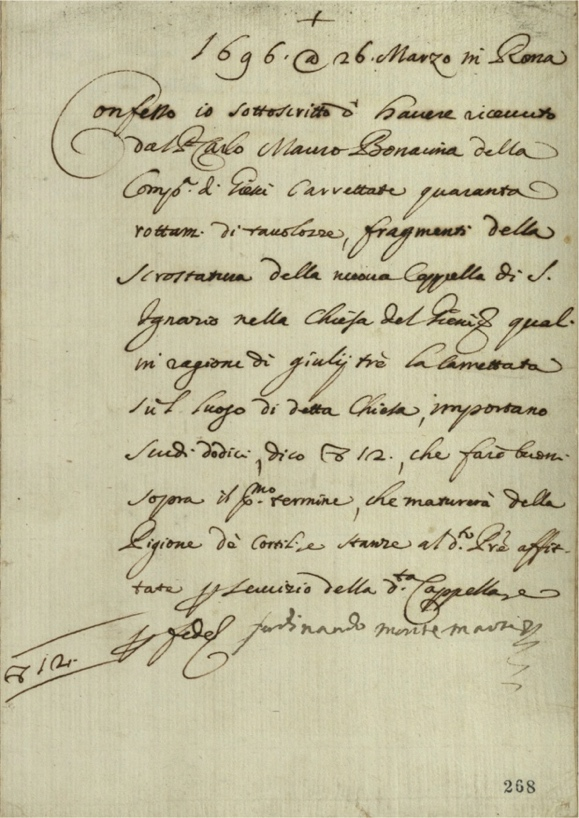 +
1696. @ 26. Marzo in Roma
Confesso io sottoscritto d' havere riceuuto
dal Pre Carlo Mauro Bonacina della
Compa. di Giesù Carrettate quaranta
rottam. di tauolozze, fragmenti della
scrostatura della nuoua Cappella di S.
Ignazio nella Chiesa del Giesù, qual.
in ragione di giulij trè la Carrettata
sù'l luogo di detta Chiesa, importano
scudi dodici, dico ▽ 12., che farò buoni
sopra il pmo. termine, che maturerà della
Pigione dè Cortili, e stanze al do. Pre affit-
tate p seruizio della da. Cappella, e
p fede
▽ 12.
ferdinando
268